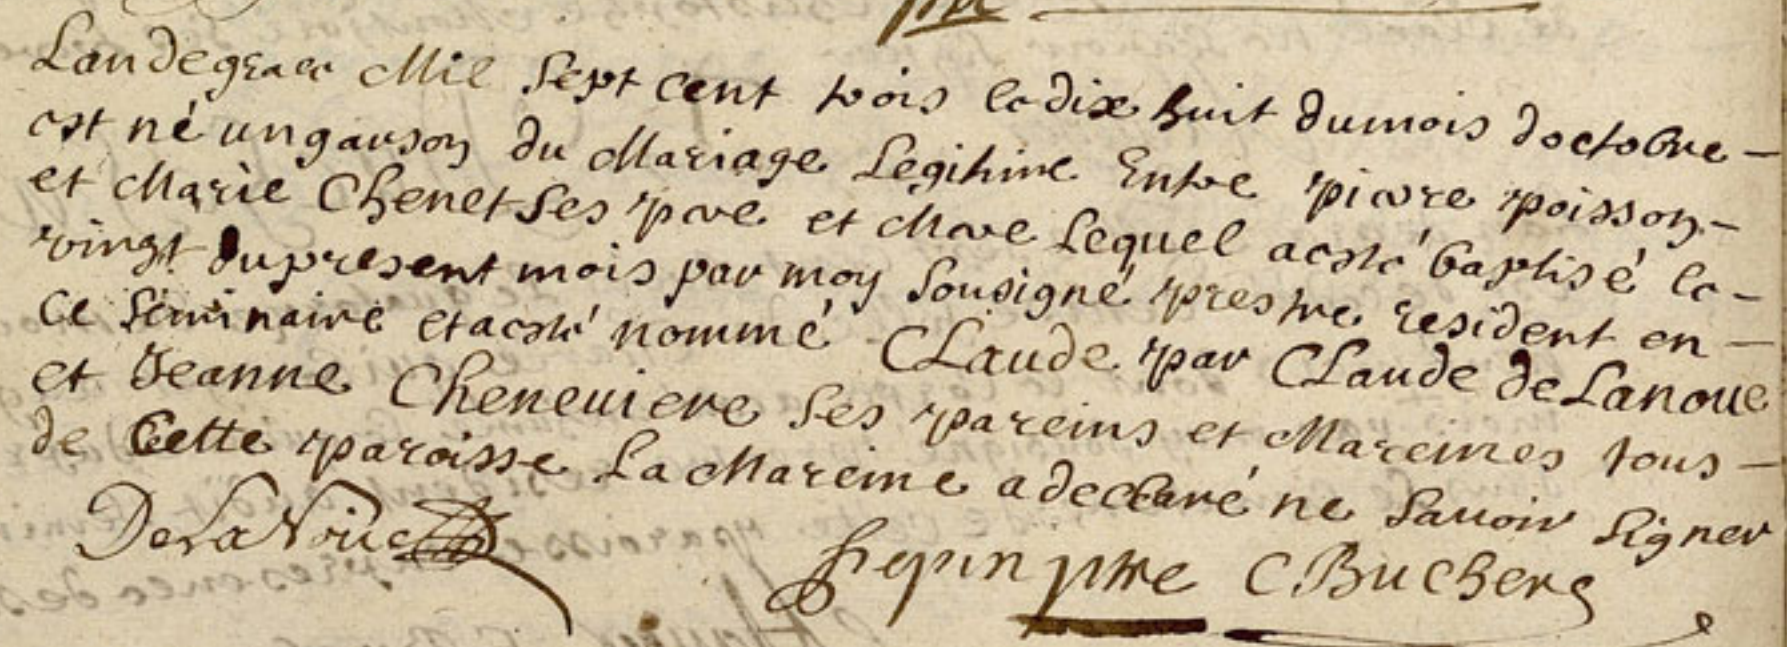 Lan de grace Mil Sept cent trois le dix huit du mois doctobre
est né un garson du Mariage Legitime Entre pierre poisson
et Marie Chenet Ses pere et Mere Lequel a esté baptisé le
vingt du present mois par moy Sousigné prestre resident en
Ce Seminaire et a esté nommé CLaude par CLaude de Lanoue
et Jeanne Cheneuiere Ses pareins et Mareines tous
de Cette paroisse La Mareine a declaré ne Sauoir Signer
De La Noüe
pptre C Buchere